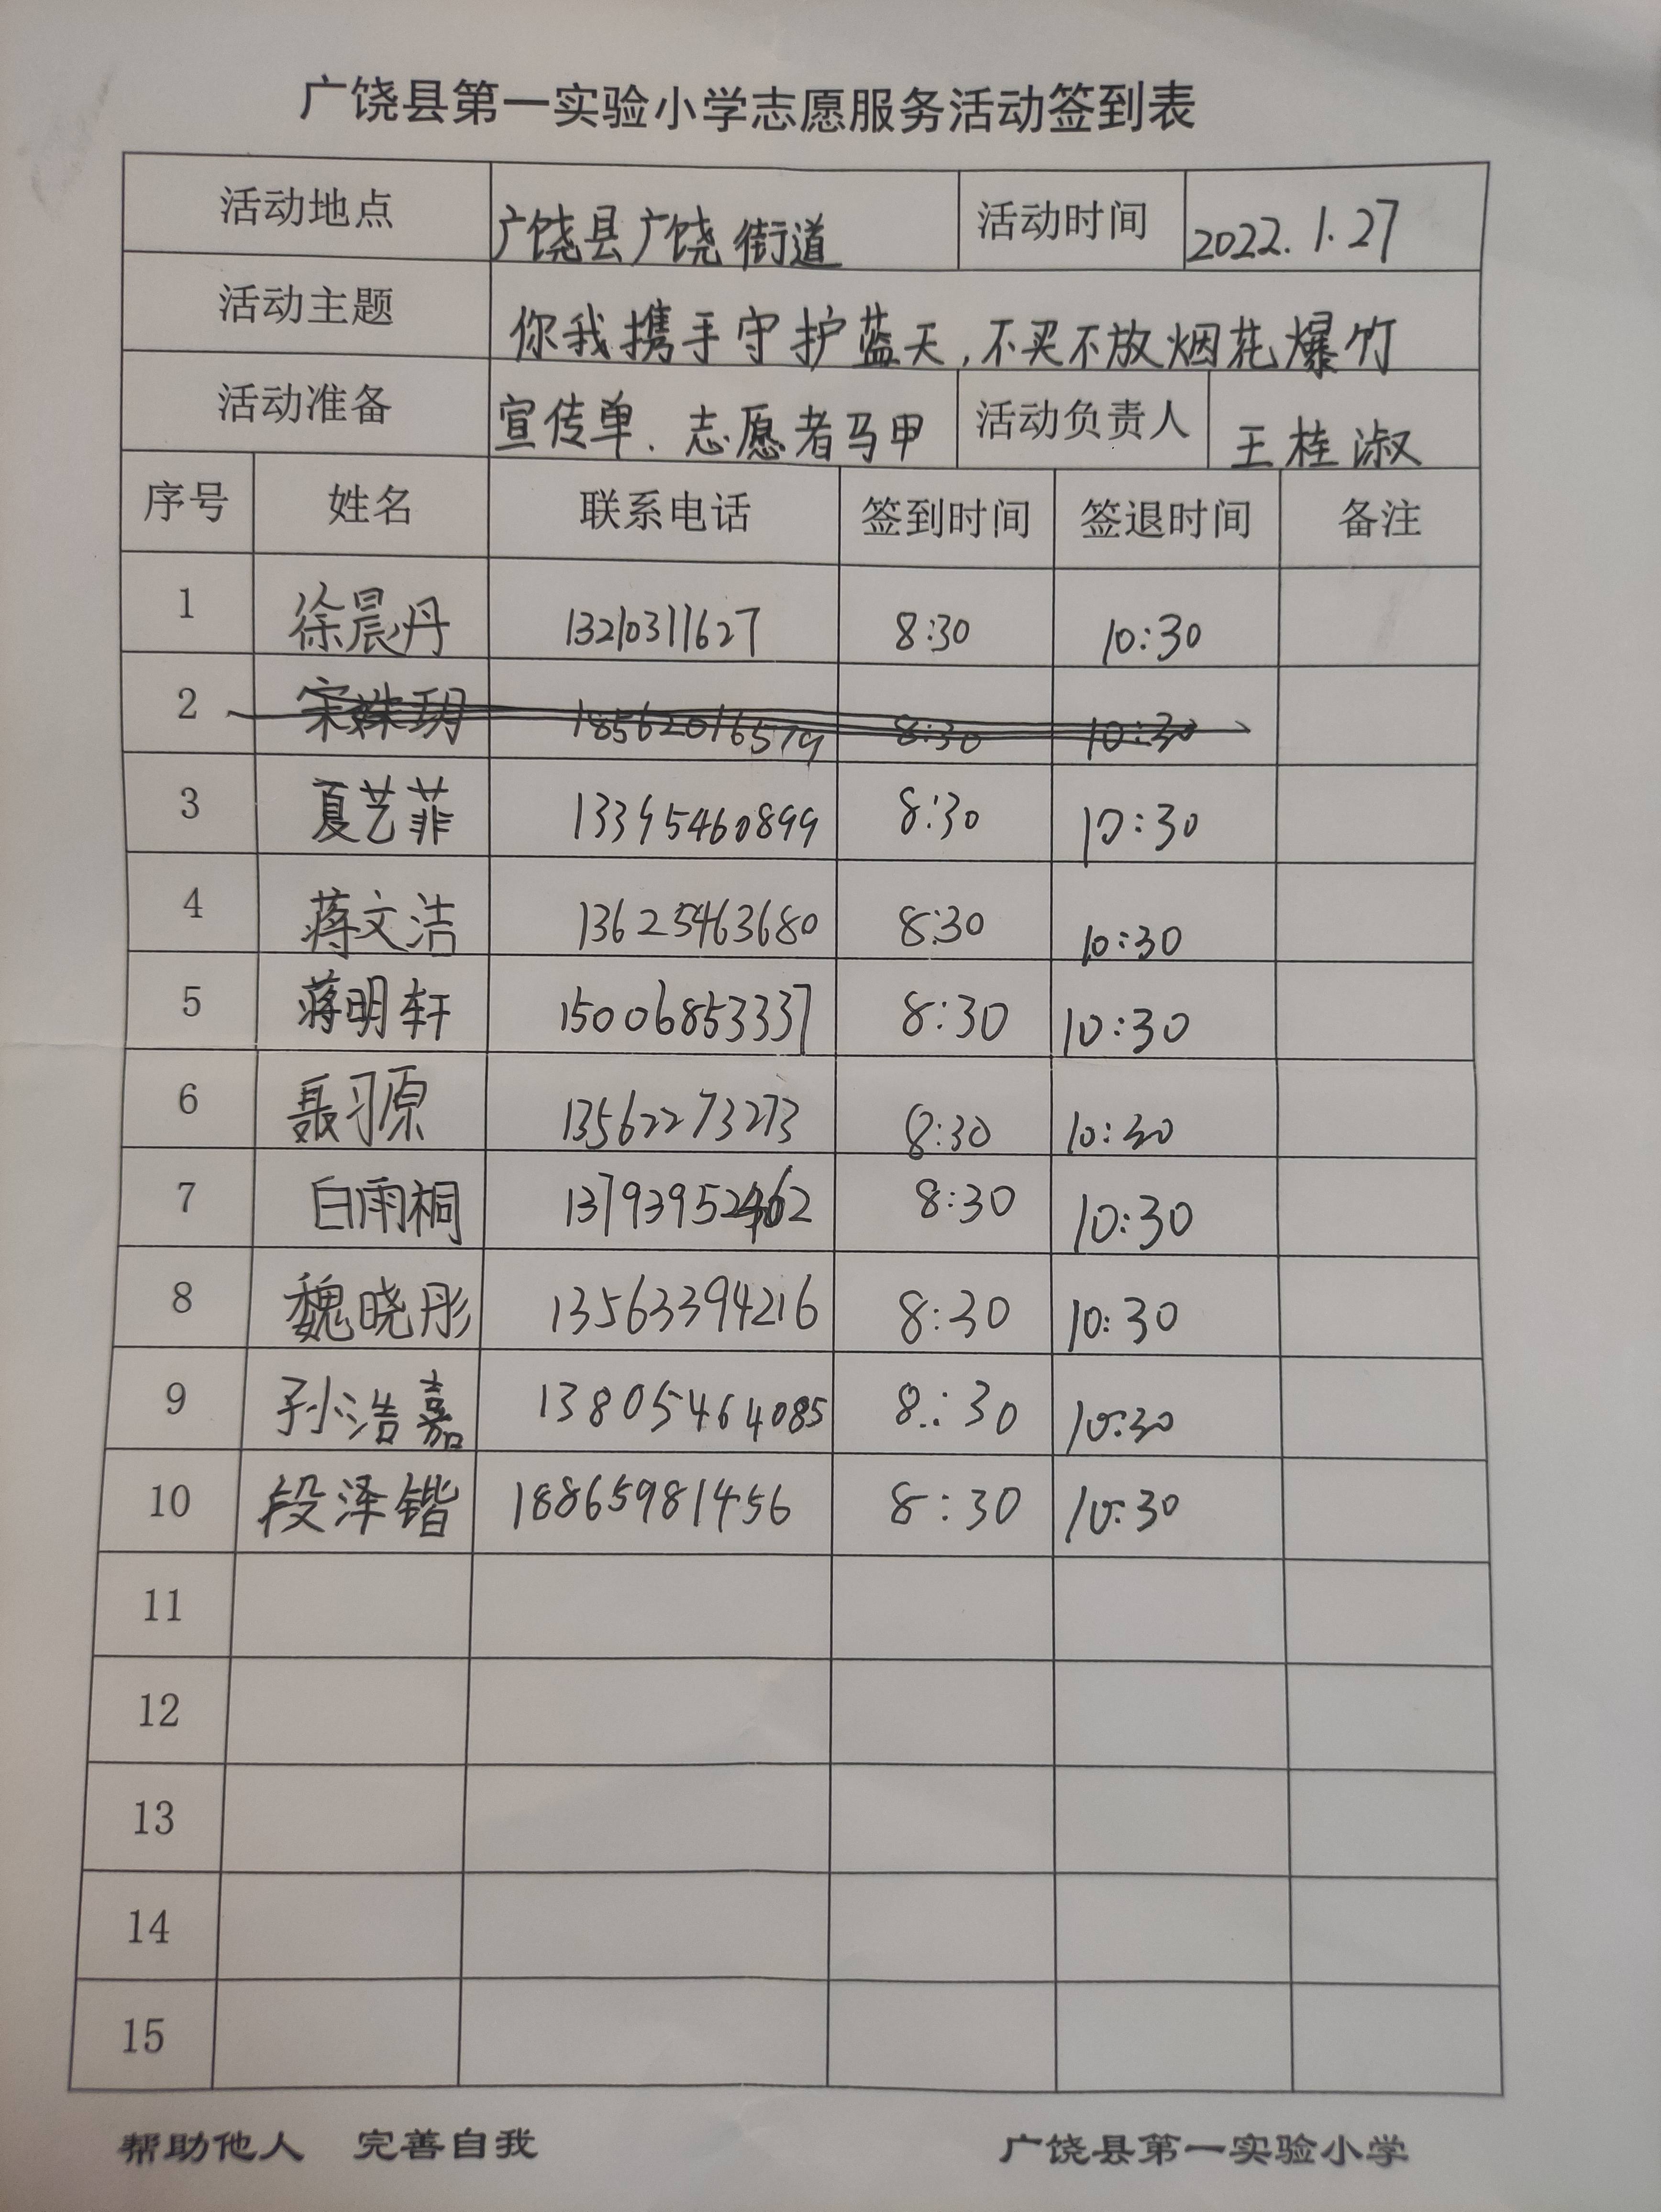 广饶县第一实验小学志愿服务活动签到表
活动地点 广饶县广饶街道 活动时间 2022.1.27
活动主题 你我携手守护蓝天,不买不放烟花爆竹
活动准备 宣传单、志愿者马甲 活动负责人 王桂淑
序号 姓名 联系电话 签到时间 签退时间 备注
1 徐晨丹 13210311627 8:30 10:30
2 宋姝玥 18562016579 8:30 10:30
3 夏艺菲 13395460899 8:30 10:30
4 蒋文洁 13625463680 8:30 10:30
5 蒋明轩 15006853337 8:30 10:30
6 聂习原 13562273273 8:30 10:30
7 白雨桐 8:30 10:30
8 魏晓彤 13563394216 8:30 10:30
9 孙浩嘉 13805464085 8:30 10:30
10 段泽锴 18865981456 8:30 10:30
11
12
13
14
15
帮助他人 完善自我 广饶县第一实验小学